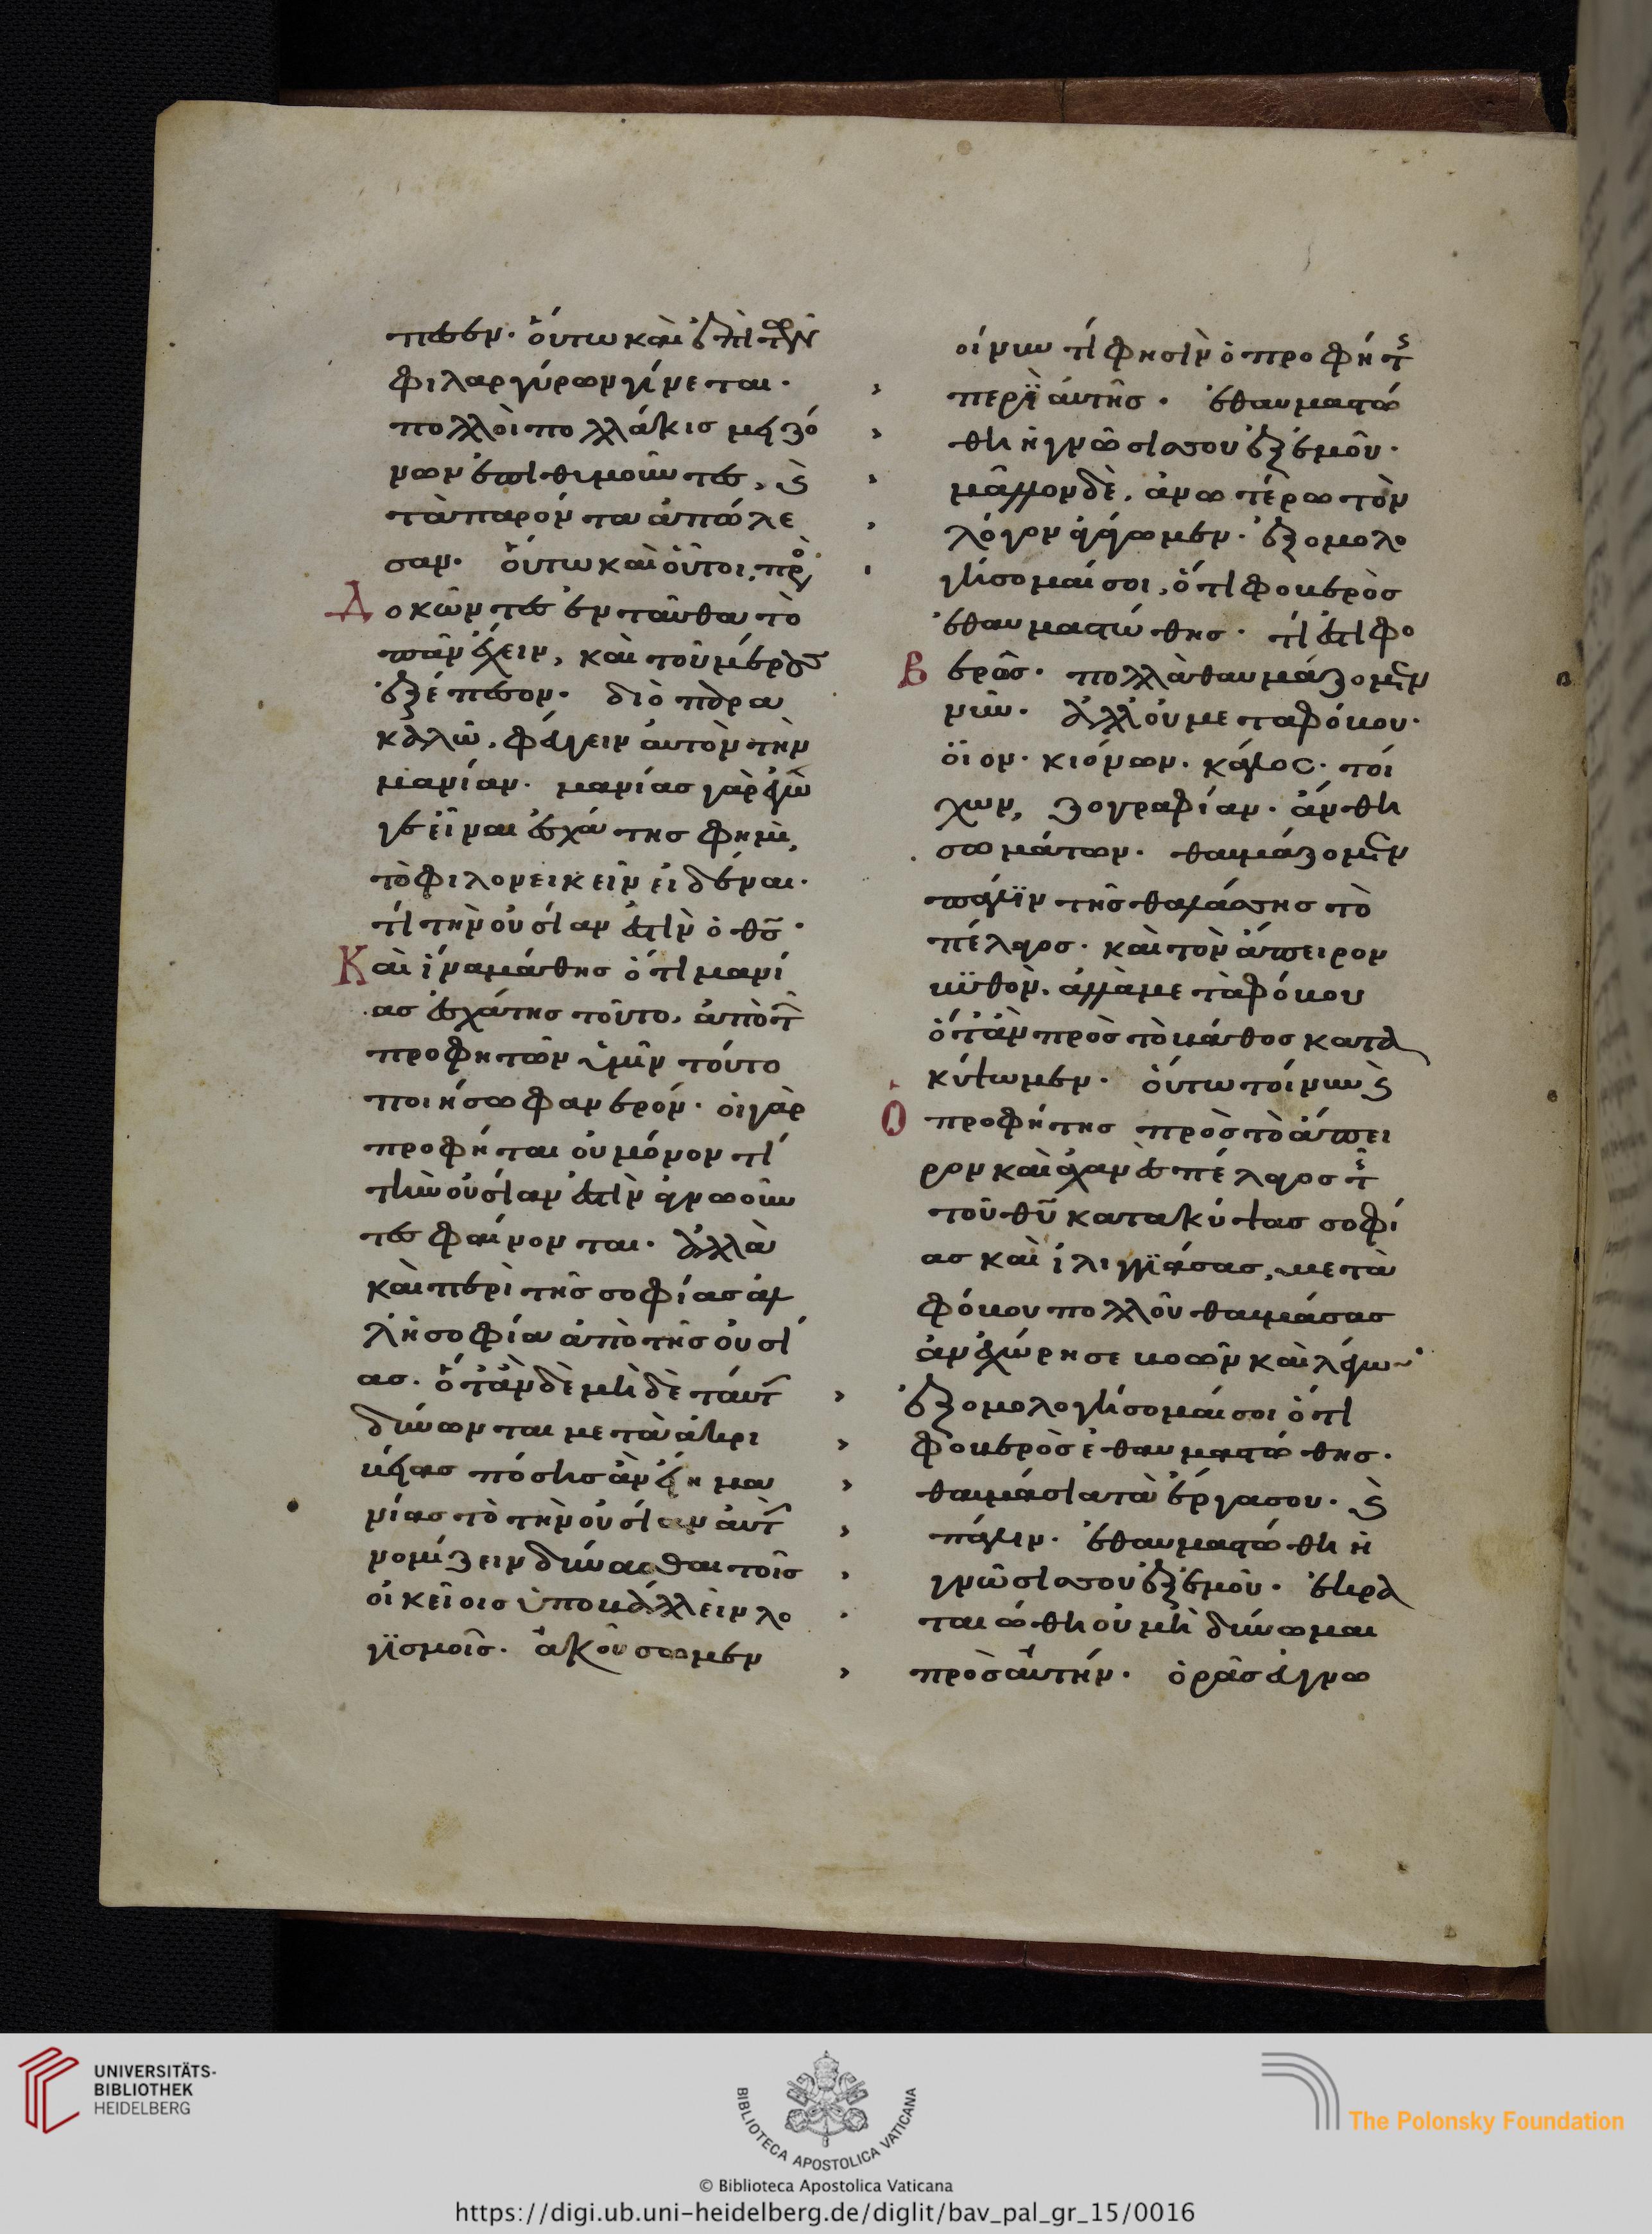 πεσεν· ὅυτω καὶ ἐπὶ τῶν
φιλαργύρων γίνεται·
πολλοὶ πολλάκις μειζό
νων ἐπιθυμοῦντες, καὶ
τὰ παρόντα ἀπώλε
σαν· ὅυτω καὶ οὗτοι, προσ
Δοκῶντες ἐνταῦθα τὸ
πᾶν ἔχειν, καὶ τοῦ μέρους
ἐξέπεσον· διὸ παρα
καλῶ, φεύγειν αὐτὸν τὴν
μανίαν· μανίας γὰρ ἔγω
γε εἶναι ἐσχάτης φημὶ,
τὸ φιλονεικεῖν εἰδέναι·
τί τὴν οὐσίαν ἐστὶν ὁ θς·
Καὶ ἵνα μάθης ὅτι μανί
ας ἐσχάτης τοῦτο, ἀπὸ τῶν
προφητῶν ὑμῖν τούτο
ποιήσω φανερόν· οἱ γὰρ
προφήται οὐ μόνον τί
τὴν οὐσίαν ἐστὶν ἀγνοοῦν
τες φαίνονται· ἀλλὰ
καὶ περὶ τῆς σοφίας ἀλ
λ' ἡ σοφία ἀπὸ τῆς οὐσί
ας. ὅταν δὲ μὴ δὲ ταύτην
δύνωνται μετὰ ἀκρι
βείας πόσης ἂν εἴη μα
νίας τὸ τὴν οὐσίαν αὐτὴν
νομίζειν δύνασθαι τοῖς
οἰκείοις ὑποβάλλειν λο
γϊσμοῖς. ἀκούσωμεν
οίνυν τί φησὶν ὁ προφήτης
περϊ αὐτῆς. ἐθαυμαστώ
θη ἡ γνῶσίς σου ἐξ ἐμοῦ·
μᾶλλον δὲ, ἀνωτέρω τὸν
λόγον ἀγάγωμεν· ἐξομολο
γήσομαί σοι, ὅτι φοβερὸς
ἐθαυμαστώθης· τί ἐστι φο
Βερῶς· πολλὰ θαυμάζομεν
νῦν· ἀλλ' οὐ μετα φόβου·
οἷον· κιόνων· κάλλος· τοί
χων, ζογραφίαν· ἄνθη
σωμάτων· θαυμάζομεν
πάλιν τῆς θαλάσσης τὸ
πέλαγος· καὶ τὸν ἄπειρον
βυθόν· ἀλλὰ μετὰ φόβου
ὅταν πρὸς τὸ βάθος κατα
κύψωμεν· ὅυτω τοίνυν καὶ
Ο προφήτης πρὸς τὸ ἄπει
ρον καὶ ἀχανὲς πέλαγος τῆς
τοῦ θυ κατακύψας σοφί
ας καὶ ἰλιγγϊάσας, μετὰ
φόβου πολλοῦ θαυμάσας
ἀνεχώρησε βοῶν καὶ λέγων·
ἐξομολογήσομαί σοι ὅτι
φοβερὸς ἐθαυμαστώθης.
θαυμάσια τὰ ἔργα σου· καὶ
πάλιν· ἐθαυμαστώθη ἡ
γνῶσίς σου ἐξ ἐμοῦ· ἐκρα
ταιώθη οὐ μὴ δύνωμαι
πρὸς αὐτήν· ὁρᾶς εὐγνω
UNIVERSITÄTS-
BIBLIOTHEK
HEIDELBERG
BIBLIOTECA APOSTOLICA VATICANA
The Polonsky Foundation
© Biblioteca Apostolica Vaticana
https://digi.ub.uni-heidelberg.de/diglit/bav_pal_gr_15/0016